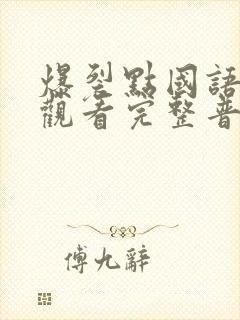 爆裂點國語
觀看完整普
傅九辭